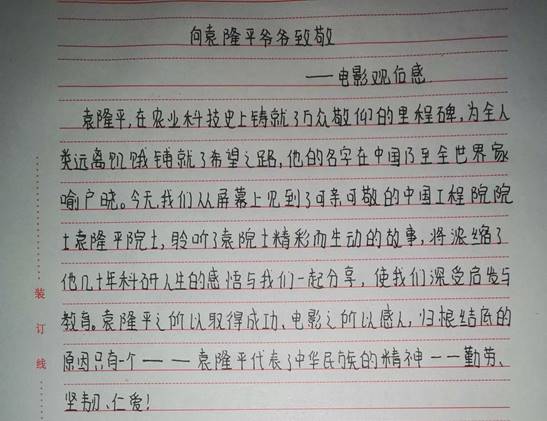 向袁隆平爷爷致敬
——电影观后感
袁隆平,在农业科技史上铸就了万众敬仰的里程碑,为全人
类远离饥饿铺就了希望之路,他的名字在中国乃至全世界家
喻户晓。今天,我们从屏幕上见到了可亲可敬的中国工程院院
士袁隆平院士,聆听了袁院士精彩而生动的故事,将浓缩了
他几十年科研人生的感悟与我们一起分享,使我们深受启发与
教育。袁隆平之所以取得成功、电影之所以感人,归根结底的
原因只有一个——袁隆平代表了中华民族的精神——勤劳、
坚韧、仁爱!
装
订
线